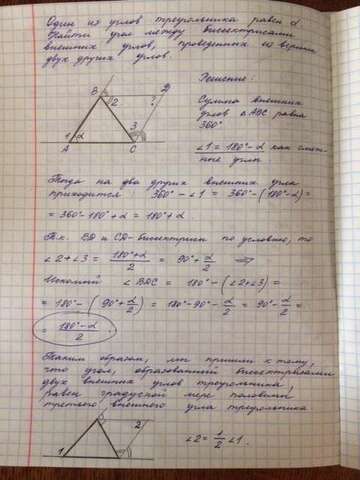 Один из углов треугольника равен α.
Найти угол между биссектрисами
внешних углов, проведенных из вершин
двух других углов.
Решение:
Сумма внешних
углов △ABC равна
360°
∠1 = 180° - α как смеж-
ные углы
B
2
D
?
1
α
3
A
C
Тогда на два других внешних угла
приходится: 360° - ∠1 = 360° - (180° - α) =
= 360° - 180° + α = 180° + α
Т.к. BD и CD - биссектрисы по условию, то
∠2 + ∠3 = (180° + α)/2 = 90° + α/2 ⇒
Искомый ∠BDC = 180° - (∠2 + ∠3) =
= 180° - (90° + α/2) = 180° - 90° - α/2 = 90° - α/2 =
= (180° - α)/2
Таким образом, мы пришли к тому,
что угол, образованный биссектрисами
двух внешних углов треугольника,
равен градусной мере половины
третьего внешнего угла треугольника
1
2
∠2 = 1/2 ∠1.